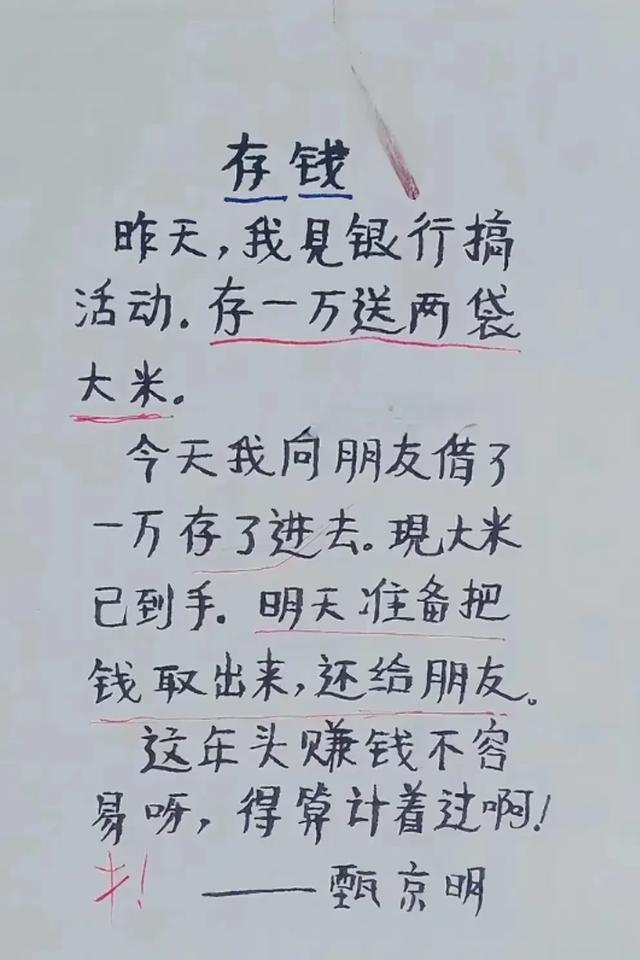 存钱
昨天,我见银行搞
活动.存一万送两袋
大米。
今天我向朋友借了
一万存了进去。现大米
已到手.明天准备把
钱取出来,还给朋友。
这年头赚钱不容
易呀,得算计着过啊!
——甄京明